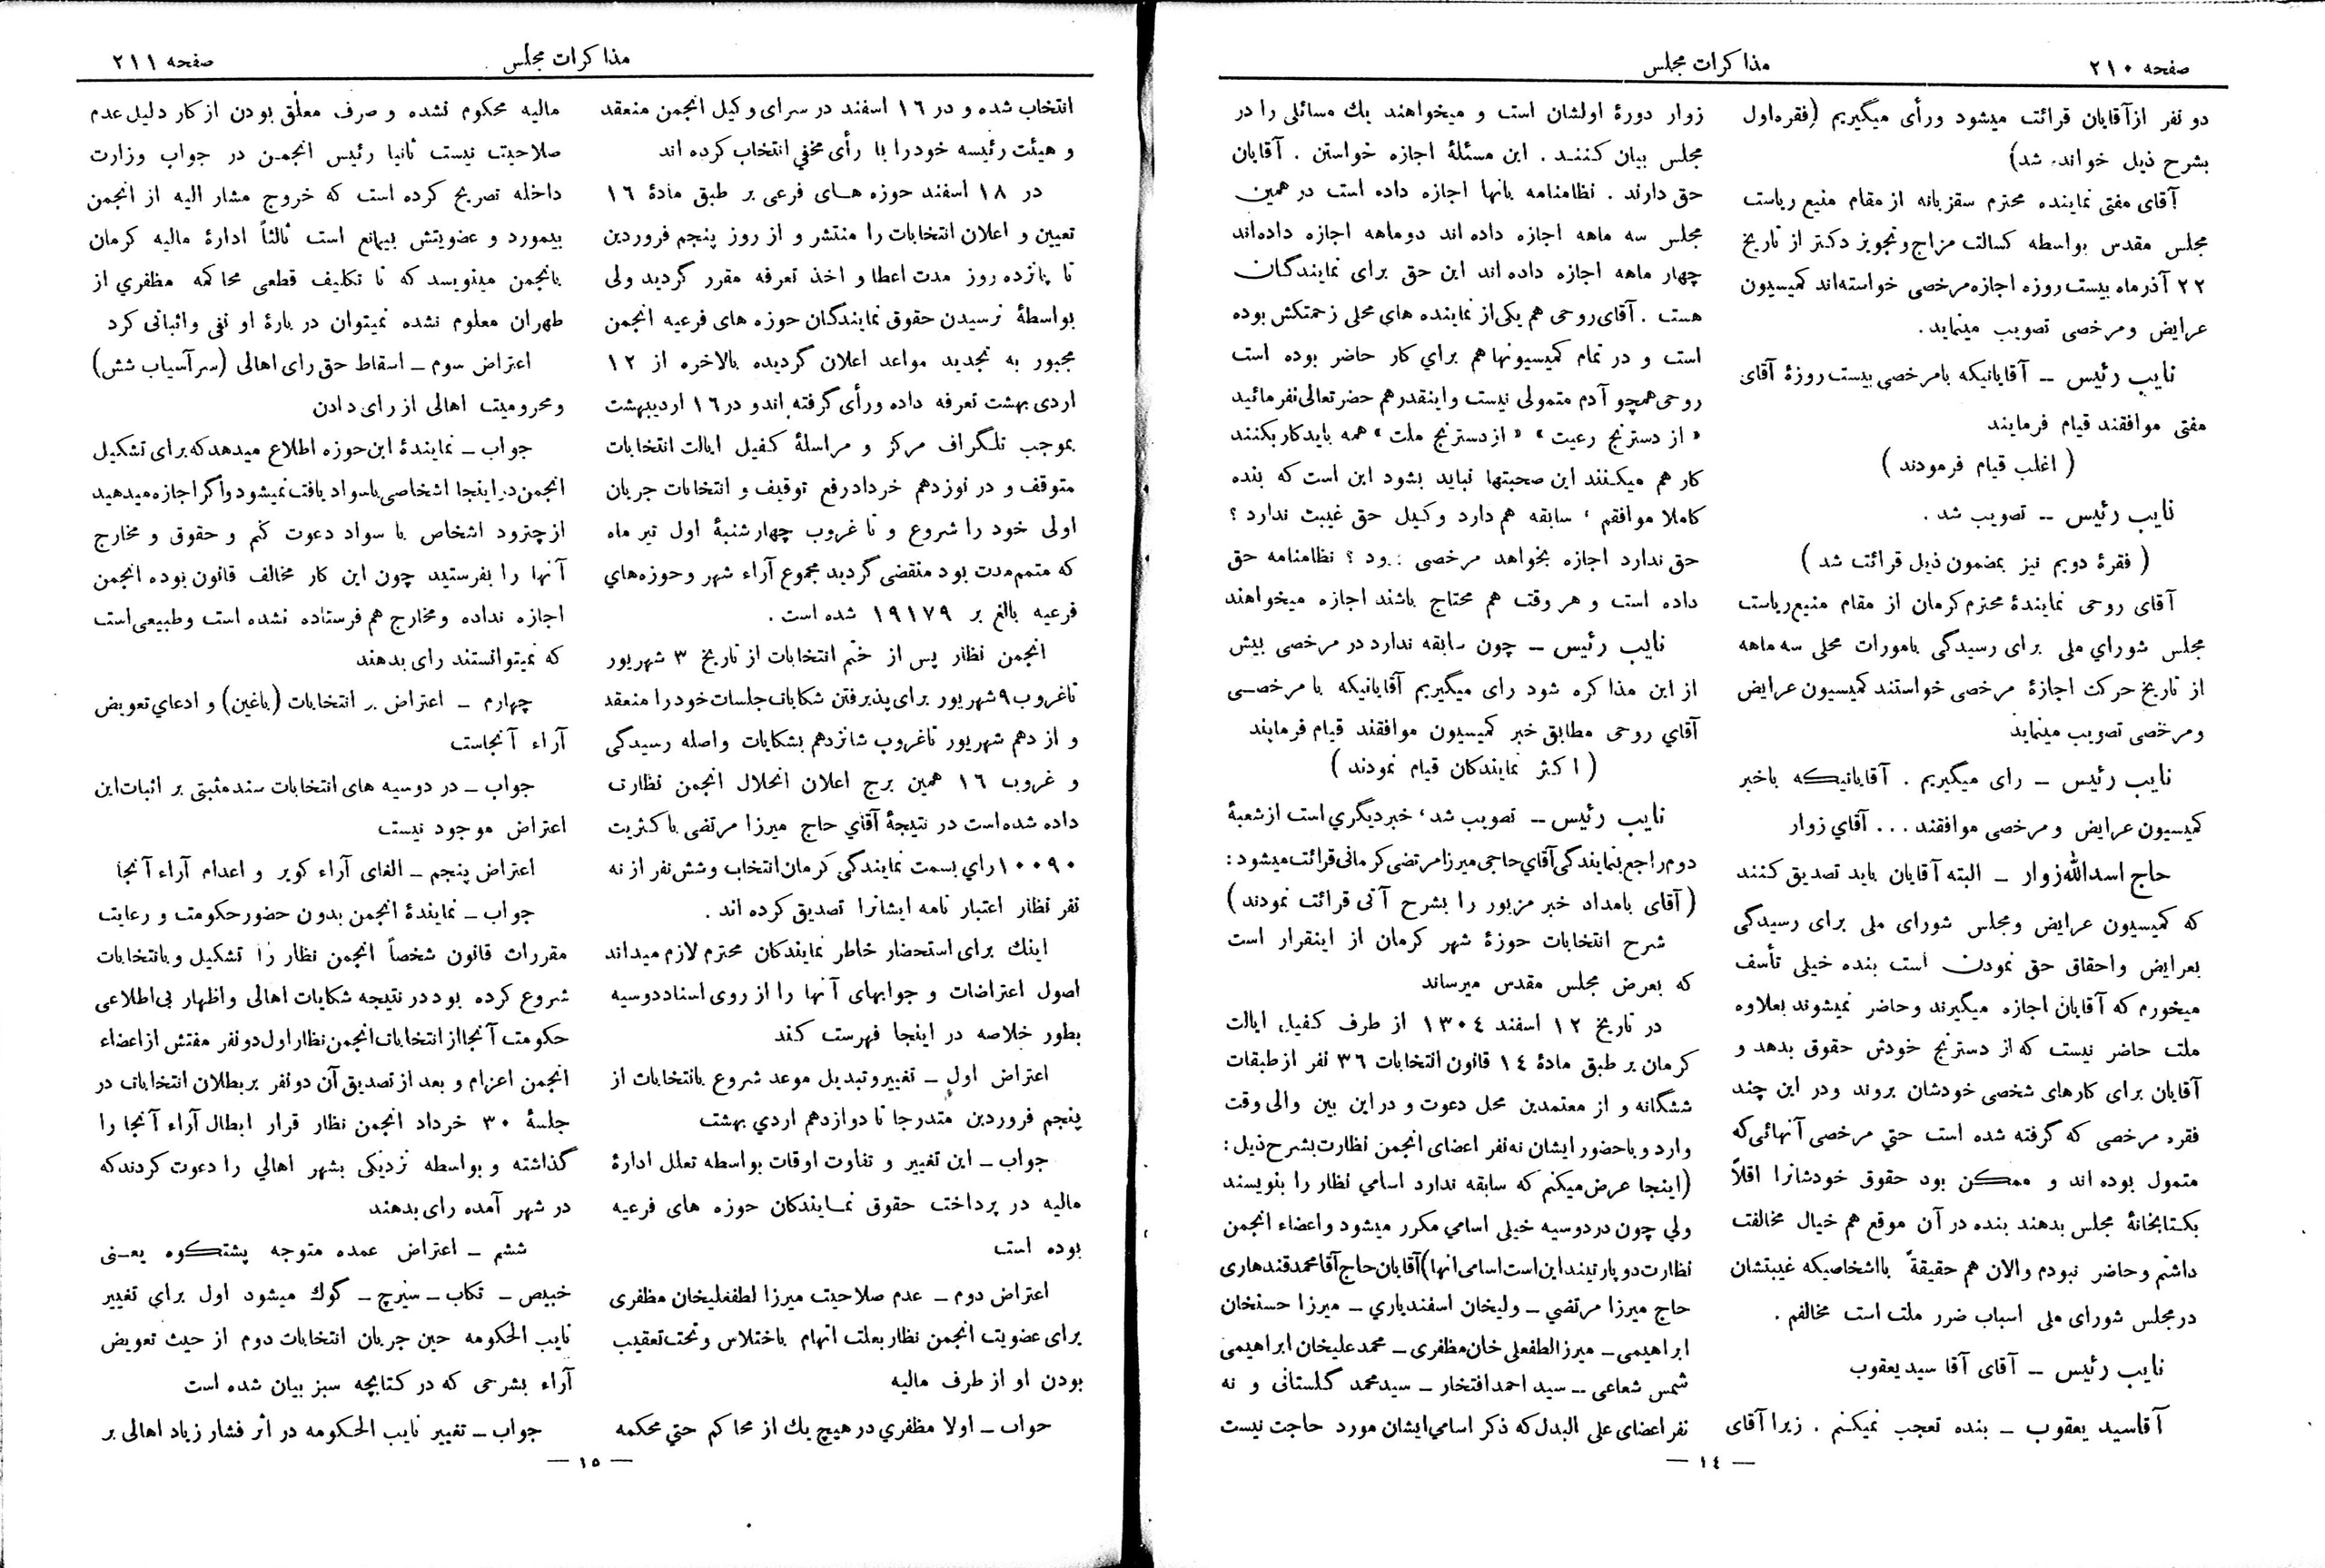 صفحه ۲۱۰
مذاکرات مجلس
دو نفر از آقایان قرائت میشود ورأی میگیریم (فقره اول
بشرح ذیل خوانده شد)
آقای مفتی نماینده محترم سقز بانه از مقام منیع ریاست
مجلس مقدس بواسطه کسالت مزاج و تجویز دکتر از تاریخ
۲۲ آذر ماه بیست روزه اجازه مرخصی خواسته‌اند کمیسیون
عرایض و مرخصی تصویب مینماید.
نایب رئیس ــ آقایانیکه بامرخصی بیست روزهٔ آقای
مفتی موافقند قیام فرمایند
(اغلب قیام فرمودند)
نایب رئیس ــ تصویب شد.
(فقرهٔ دویم نیز بمضمون ذیل قرائت شد)
آقای روحی نمایندهٔ محترم کرمان از مقام منیع ریاست
مجلس شورای ملی برای رسیدگی بامورات محلی سه ماهه
از تاریخ حرکت اجازهٔ مرخصی خواستند کمیسیون عرایض
ومرخصی تصویب مینماید
نایب رئیس ــ رای میگیریم. آقایانیکه باخبر
کمیسیون عرایض و مرخصی موافقند ... آقای زوار
حاج اسدالله زوار ــ البته آقایان باید تصدیق کنند
که کمیسیون عرایض ومجلس شورای ملی برای رسیدگی
بعرایض واحقاق حق نمودن است بنده خیلی تأسف
میخورم که آقایان اجازه میگیرند وحاضر نمیشوند بعلاوه
ملت حاضر نیست که از دسترنج خودش حقوق بدهد و
آقایان برای کارهای شخصی خودشان بروند ودر این چند
فقره مرخصی که گرفته شده است حتی مرخصی آنهائی که
متمول بوده اند و ممکن بود حقوق خودشانرا اقلاً
بکتابخانهٔ مجلس بدهند بنده در آن موقع هم خیال مخالفت
داشتم وحاضر نبودم والان هم حقیقةً بااشخاصیکه غیبتشان
درمجلس شورای ملی اسباب ضرر ملت است مخالفم.
نایب رئیس ــ آقای آقا سید یعقوب
آقاسید یعقوب ــ بنده تعجب نمیکنم. زیرا آقای
زوار دورهٔ اولشان است و میخواهند یك مسائلی را در
مجلس بیان کنند. این مسئلهٔ اجازه خواستن. آقایان
حق دارند. نظامنامه بآنها اجازه داده است در همین
مجلس سه ماهه اجازه داده اند دوماهه اجازه داده‌اند
چهار ماهه اجازه داده اند این حق برای نمایندگان
هست. آقای روحی هم یکی از نماینده های محلی زحمتکش بوده
است و در تمام کمیسیونها هم برای کار حاضر بوده است
روحی همچو آدم متمولی نیست و اینقدر هم حضرتعالی نفرمائید
«از دسترنج رعیت» «از دسترنج ملت» همه باید کار بکنند
کار هم میکنند این صحبتها نباید بشود این است که بنده
کاملا موافقم، سابقه هم دارد وکیل حق غیبت ندارد؟
حق ندارد اجازه بخواهد مرخصی برود؟ نظامنامه حق
داده است و هر وقت هم محتاج باشند اجازه میخواهند
نایب رئیس ــ چون سابقه ندارد در مرخصی بیش
از این مذاکره شود رای میگیریم آقایانیکه با مرخصی
آقای روحی مطابق خبر کمیسیون موافقند قیام فرمایند
(اکثر نمایندکان قیام نمودند)
نایب رئیس ــ تصویب شد، خبر دیگری است از شعبهٔ
دوم راجع بنمایندگی آقای حاجی میرزا مرتضی کرمانی قرائت میشود:
(آقای بامداد خبر مزبور را بشرح آتی قرائت نمودند)
شرح انتخابات حوزهٔ شهر کرمان از اینقرار است
که بعرض مجلس مقدس میرساند
در تاریخ ۱۲ اسفند ۱۳۰٤ از طرف کفیل ایالت
کرمان بر طبق مادهٔ ۱٤ قانون انتخابات ۳٦ نفر از طبقات
ششگانه و از معتمدین محل دعوت و در این بین والی وقت
وارد و با حضور ایشان نه نفر اعضای انجمن نظارت بشرح ذیل:
(اینجا عرض میکنم که سابقه ندارد اسامی نظار را بنویسند
ولی چون در دوسیه خیلی اسامی مکرر میشود واعضاء انجمن
نظارت دو پارتیند این است اسامی آنها) آقایان حاج آقا محمد قندهاری
حاج میرزا مرتضی ــ ولیخان اسفندیاری ــ میرزا حسنخان
ابراهیمی ــ میرزا لطفعلی خان مظفری ــ محمد علیخان ابراهیمی
شمس شعاعی ــ سید احمد افتخار ــ سید محمد گلستانی و نه
نفر اعضای علی البدل که ذکر اسامی ایشان مورد حاجت نیست
— ۱٤ —
مذاکرات مجلس
صفحه ۲۱۱
انتخاب شده و در ۱٦ اسفند در سرای وکیل انجمن منعقد
و هیئت رئیسه خود را با رأی مخفی انتخاب کرده اند
در ۱۸ اسفند حوزه های فرعی بر طبق مادهٔ ۱٦
تعیین و اعلان انتخابات را منتشر و از روز پنجم فروردین
تا پانزده روز مدت اعطا و اخذ تعرفه مقرر گردید ولی
بواسطهٔ نرسیدن حقوق نمایندگان حوزه های فرعیه انجمن
مجبور به تجدید مواعد اعلان گردیده بالاخره از ۱۲
اردی بهشت تعرفه داده ورأی گرفته اند و در ۱٦ اردیبهشت
بموجب تلگراف مرکز و مراسلهٔ کفیل ایالت انتخابات
متوقف و در نوزدهم خرداد رفع توقیف و انتخابات جریان
اولی خود را شروع و تا غروب چهارشنبهٔ اول تیر ماه
که متمم مدت بود منقضی گردید مجموع آراء شهر وحوزه‌های
فرعیه بالغ بر ۱۹۱۷۹ شده است.
انجمن نظار پس از ختم انتخابات از تاریخ ۳ شهریور
تاغروب ۹ شهریور برای پذیرفتن شکایات جلسات خود را منعقد
و از دهم شهریور تاغروب شانزدهم بشکایات واصله رسیدگی
و غروب ۱٦ همین برج اعلان انحلال انجمن نظارت
داده شده است در نتیجهٔ آقای حاج میرزا مرتضی باکثریت
۱۰۰۹۰ رای بسمت نمایندگی کرمان انتخاب وشش نفر از نه
نفر نظار اعتبار نامه ایشانرا تصدیق کرده اند.
اینك برای استحضار خاطر نمایندکان محترم لازم میداند
اصول اعتراضات و جوابهای آنها را از روی اسناد دوسیه
بطور خلاصه در اینجا فهرست کند
اعتراض اول ــ تغییر و تبدیل موعد شروع بانتخابات از
پنجم فروردین متدرجا تا دوازدهم اردی بهشت
جواب ــ این تغییر و تفاوت اوقات بواسطه تعلل ادارهٔ
مالیه در پرداخت حقوق نمایندکان حوزه های فرعیه
بوده است
اعتراض دوم ــ عدم صلاحیت میرزا لطفعلیخان مظفری
برای عضویت انجمن نظار بعلت اتهام باختلاس و تحت تعقیب
بودن او از طرف مالیه
جواب ــ اولا مظفری در هیچ یك از محاکم حتی محکمه
مالیه محکوم نشده و صرف معلق بودن از کار دلیل عدم
صلاحیت نیست ثانیا رئیس انجمن در جواب وزارت
داخله تصریح کرده است که خروج مشار الیه از انجمن
بیمورد و عضویتش بیمانع است ثالثاً ادارهٔ مالیه کرمان
بانجمن مینویسد که تا تکلیف قطعی محاکمه مظفری از
طهران معلوم نشده نمیتوان در بارهٔ او نفی واثباتی کرد
اعتراض سوم ــ اسقاط حق رای اهالی (سرآسیاب شش)
ومحرومیت اهالی از رای دادن
جواب ــ نمایندهٔ این حوزه اطلاع میدهد که برای تشکیل
انجمن در اینجا اشخاصی باسواد یافت نمیشود واگر اجازه میدهید
از چترود اشخاص با سواد دعوت کنم و حقوق و مخارج
آنها را بفرستید چون این کار مخالف قانون بوده انجمن
اجازه نداده ومخارج هم فرستاده نشده است وطبیعی است
که نمیتوانستند رای بدهند
چهارم ــ اعتراض بر انتخابات (باغین) و ادعای تعویض
آراء آنجاست
جواب ــ در دوسیه های انتخابات سند مثبتی بر اثبات این
اعتراض موجود نیست
اعتراض پنجم ــ الغای آراء کویر و اعدام آراء آنجا
جواب ــ نمایندهٔ انجمن بدون حضور حکومت و رعایت
مقررات قانون شخصاً انجمن نظار را تشکیل و بانتخابات
شروع کرده بود در نتیجه شکایات اهالی واظهار بی‌اطلاعی
حکومت آنجا از انتخابات انجمن نظار اول دو نفر مفتش از اعضاء
انجمن اعزام و بعد از تصدیق آن دو نفر بر بطلان انتخابات در
جلسهٔ ۳۰ خرداد انجمن نظار قرار ابطال آراء آنجا را
گذاشته و بواسطه نزدیکی بشهر اهالی را دعوت کردند که
در شهر آمده رای بدهند
ششم ــ اعتراض عمده متوجه پشتکوه یعنی
خبیص ــ تکاب ــ سیرچ ــ گوك میشود اول برای تغییر
نایب الحکومه حین جریان انتخابات دوم از حیث تعویض
آراء بشرحی که در کتابچه سبز بیان شده است
جواب ــ تغییر نایب الحکومه در اثر فشار زیاد اهالی بر
— ۱۵ —